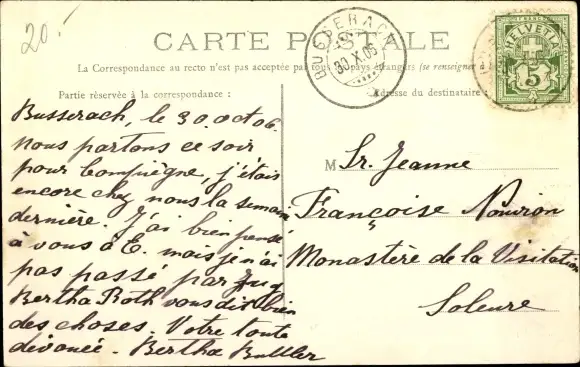 20.-
CARTE POSTALE
BUSSERACH
30.X.06
HELVETIA
5
La Correspondance au recto n'est pas acceptée par tous les pays étrangers (se renseigner
Partie réservée à la correspondance :
Adresse du destinataire :
Busserach, le 30. oct 06.
Nous partons ce soir
pour Compiègne, j'étais
encore chez nous la semaine
dernière. J'ai bien pensé
à vous à E. mais je n'ai
pas passé par Zug
Bertha Roth vous dit bien
des choses. Votre toute
dévouée. Bertha
M Sr. Jeanne
Françoise
Monastère de la Visitation
Soleure